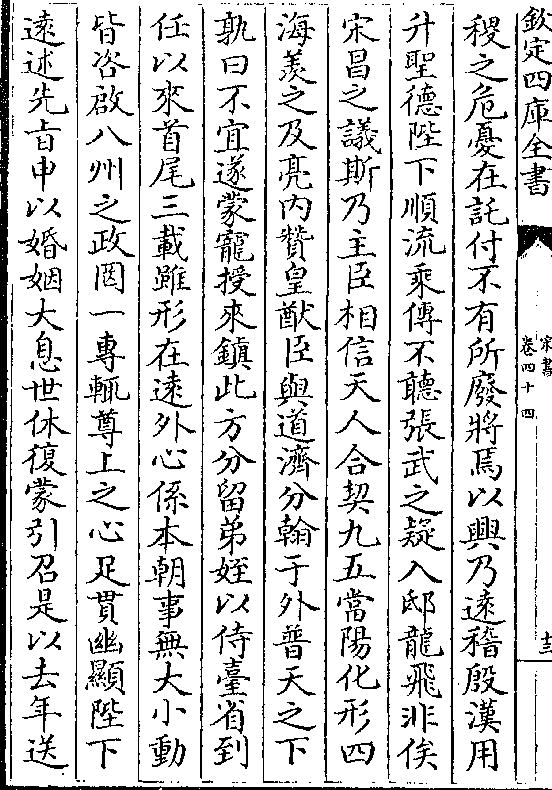 欽定四庫全書
宋書
卷四十四
稷之危憂在託付不有所廢將焉以興乃遠稽殷漢用
升聖德陛下順流乘傳不聽張武之疑入邸龍飛非俟
宋昌之議斯乃主臣相信天人合契九五當陽化形四
海羨之及亮内贊皇猷臣與道濟分翰于外普天之下
孰曰不宜遂蒙寵授來鎮此方分留弟姪以侍臺省到
任以來首尾三載雖形在遠外心係本朝事無大小動
皆咨啟八州之政罔一專輒尊上之心足貫幽顯陛下
遠述先旨申以婚姻大息世休復蒙引召是以去年送